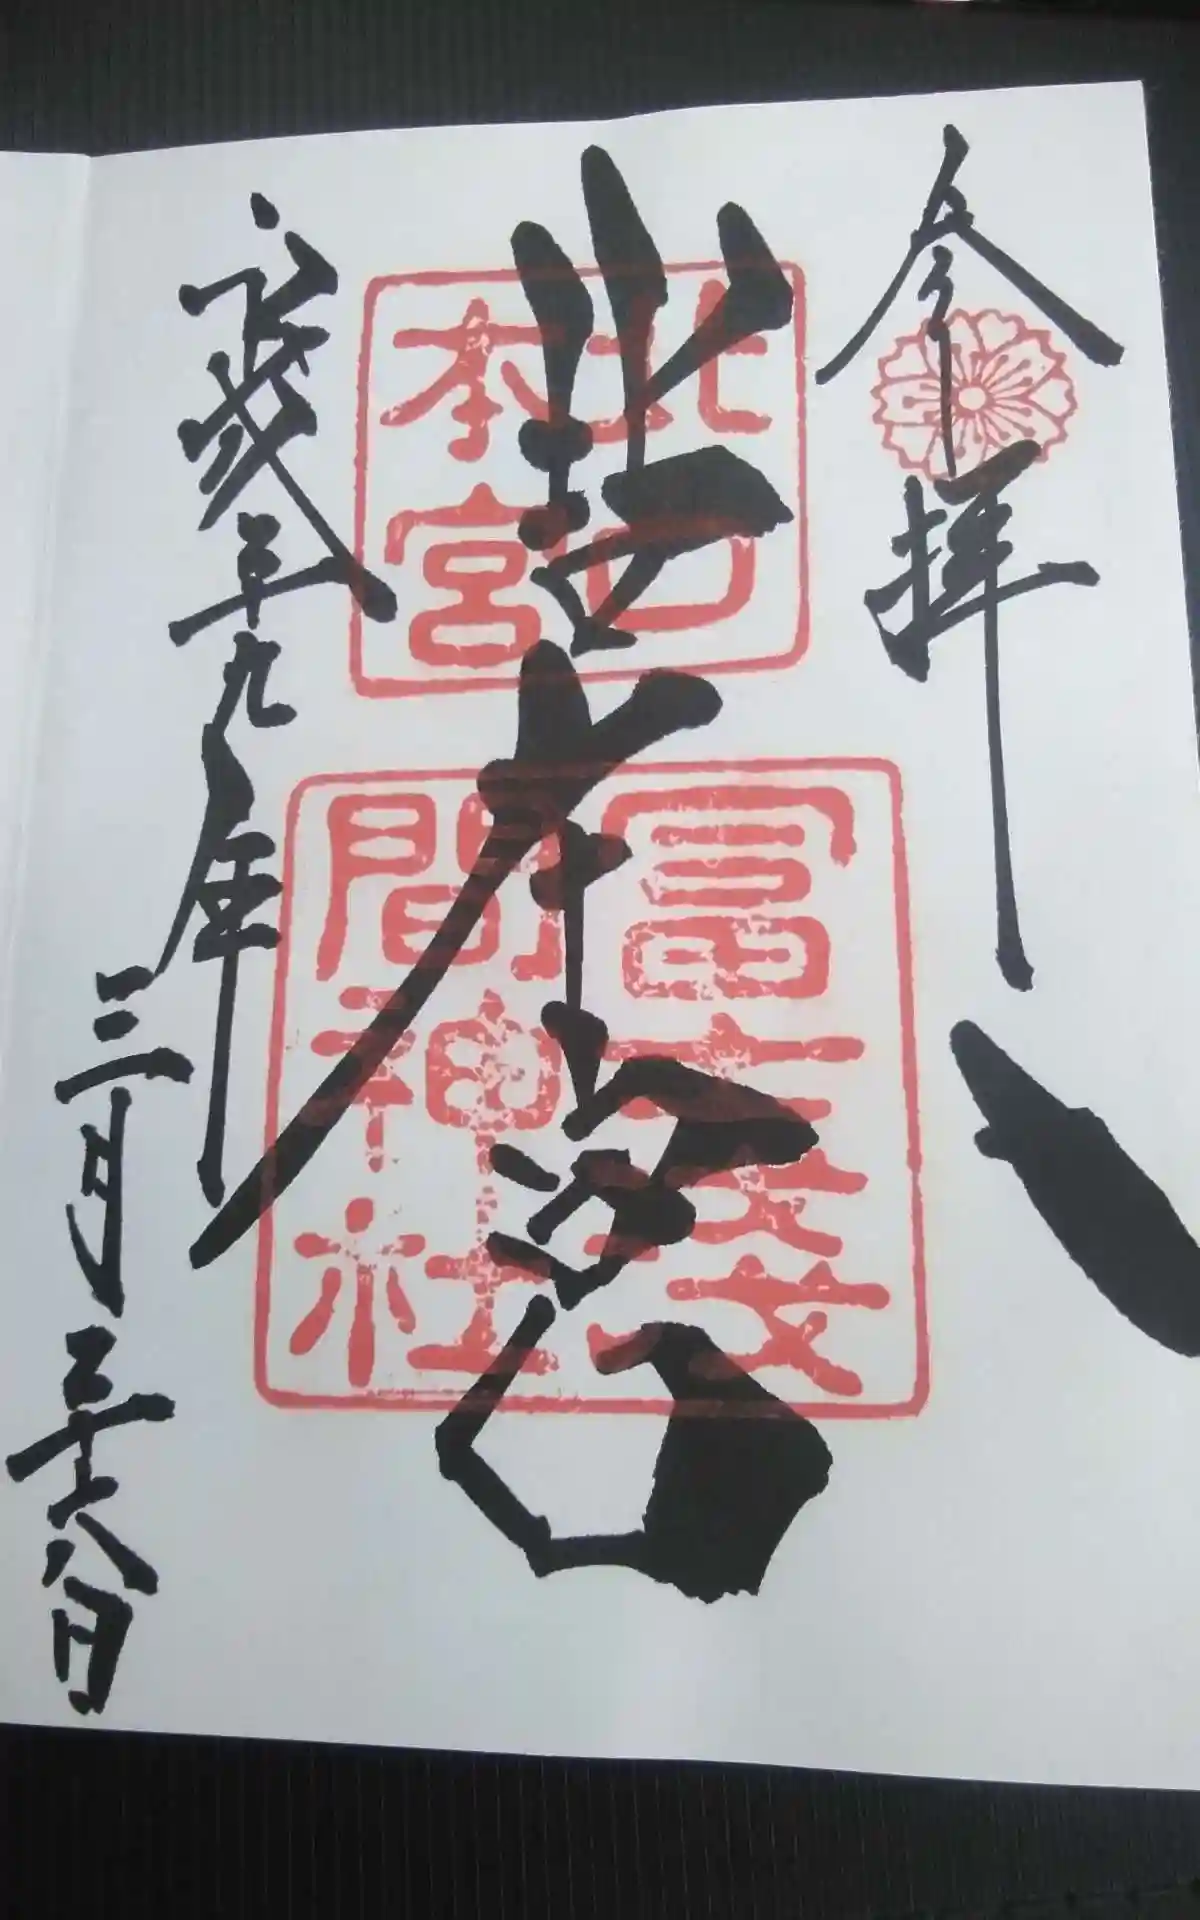 参拝
北口本宮
北口
本宮
冨士淺
間神社
平成二十九年
三月二十八日